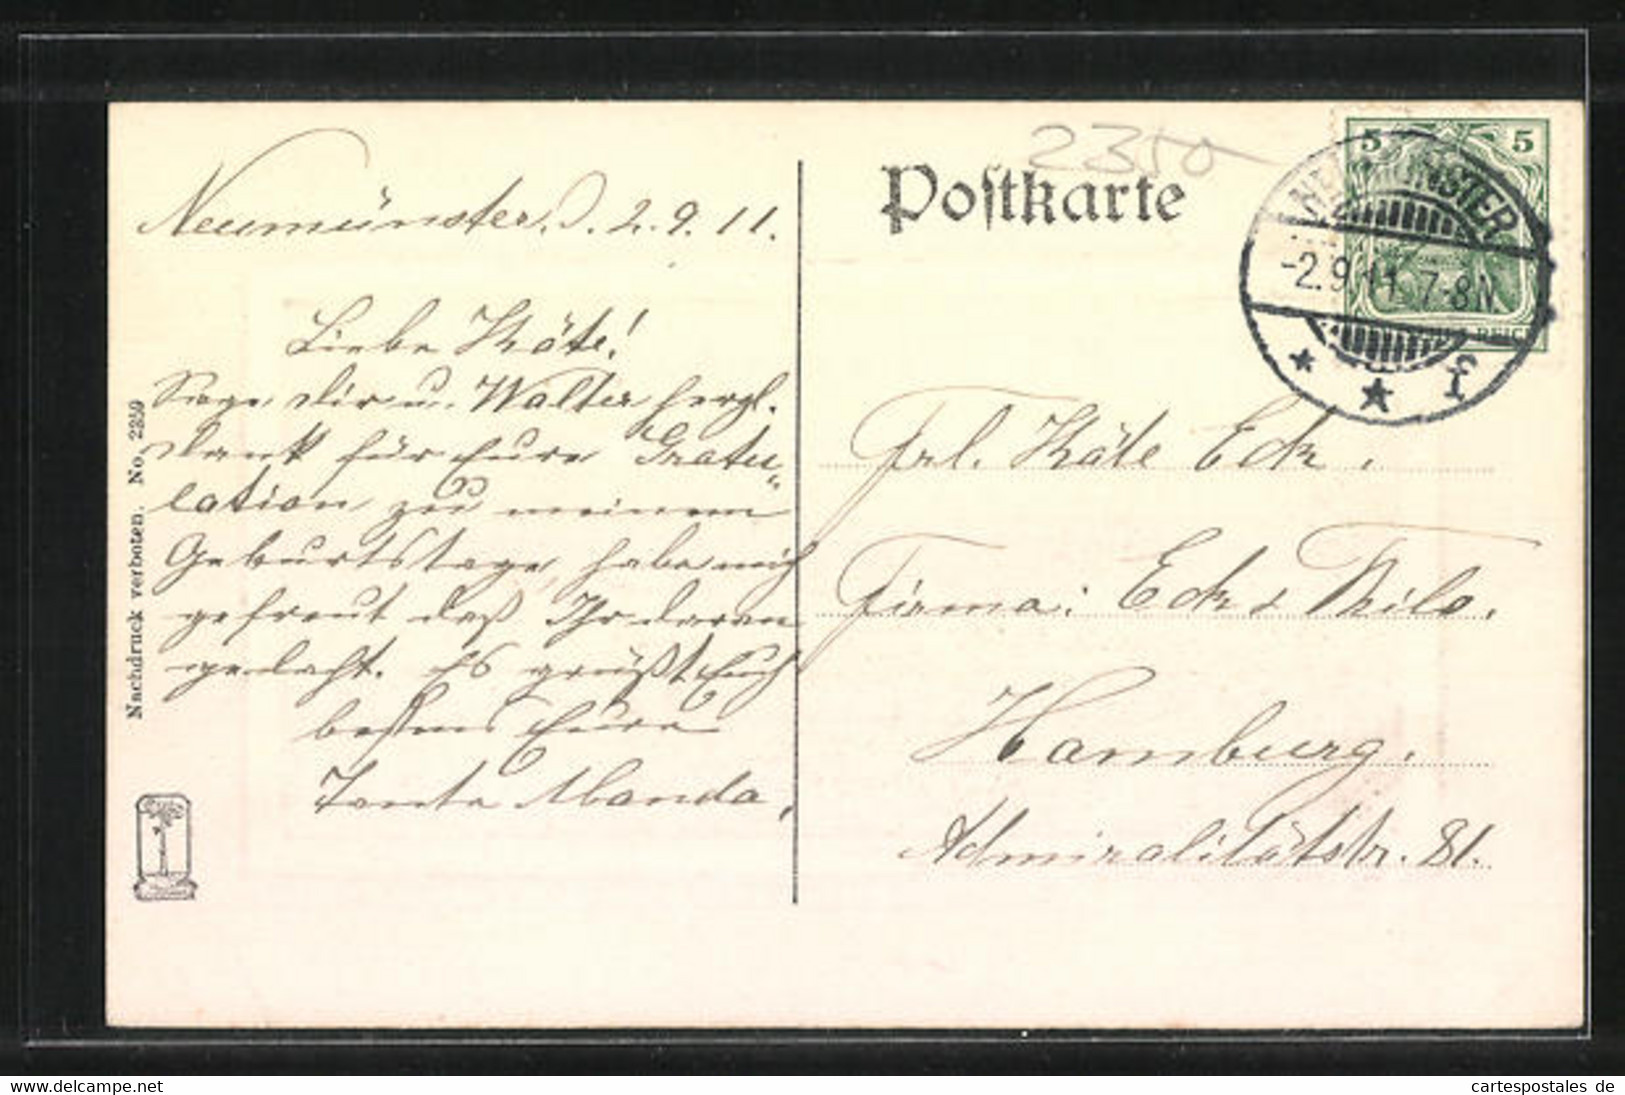 2350
Postkarte
5 5
NEUMÜNSTER
-2.9.11. 7-8N
* * f
REICH
Neumünster, d. 2.9.11.
Liebe Käte!
Sage Dir u. Walter herzl.
Dank für Eure Gratu-
lation zu meinem
Geburtstage, habe mich
gefreut daß Ihr daran
gedacht. Es grüßt Euch
bestens Eure
Tante Manda.
Frl. Käte Eck.
Firma: Eck & Thilo.
Hamburg.
Admiralitätstr. 81.
Nachdruck verboten. No. 2359
www.delcampe.net
cartespostales de